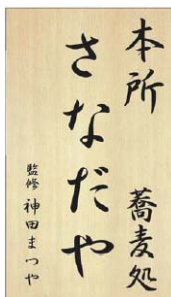 本所 蕎麦処
さなだや
監修 神田まつや